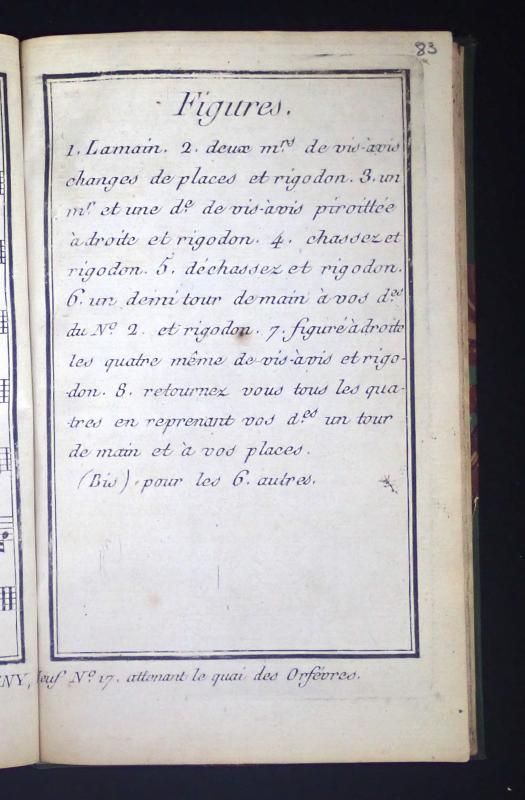 83
Figures.
1. Lamain. 2. deux m.rs de vis-àvis
changes de places et rigodon. 3. un
m.r et une d.e de vis-àvis piroittée
à droite et rigodon. 4. chassez et
rigodon. 5. déchassez et rigodon.
6. un demi tour de main à vos d.es
du N.o 2. et rigodon. 7. figuré à droite
les quatre même de vis-àvis et rigo-
don. 8. retournez vous tous les qua-
tres en reprenant vos d.es un tour
de main et à vos places.
(Bis) pour les 6. autres.
NY, Neuf N.o 17. attenant le quai des Orfévres.